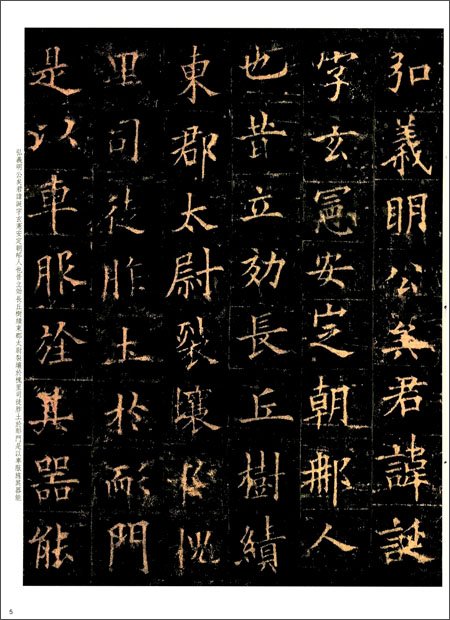 弘義明公矣君諱誕
字玄憲安定朝那人
也昔立効長丘樹績
東郡太尉裂壤於槐
里司徒胙土於耏門
是以車服旌其器能
弘義明公矣君諱誕字玄憲安定朝那人也昔立効長丘樹績東郡太尉裂壤於槐里司徒胙土於耏門是以車服旌其器能
5